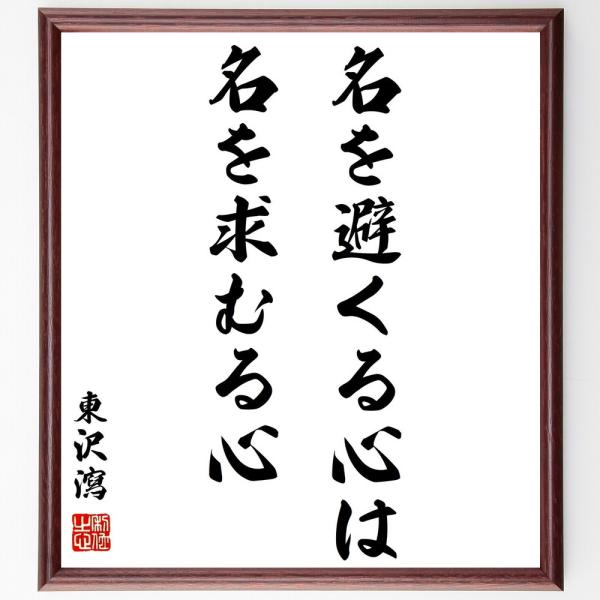 名を避くる心は
名を求むる心
東沢瀉